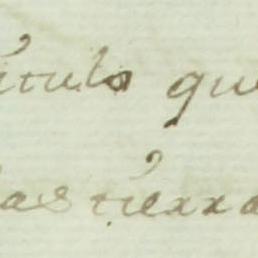 itulo que
las tierra